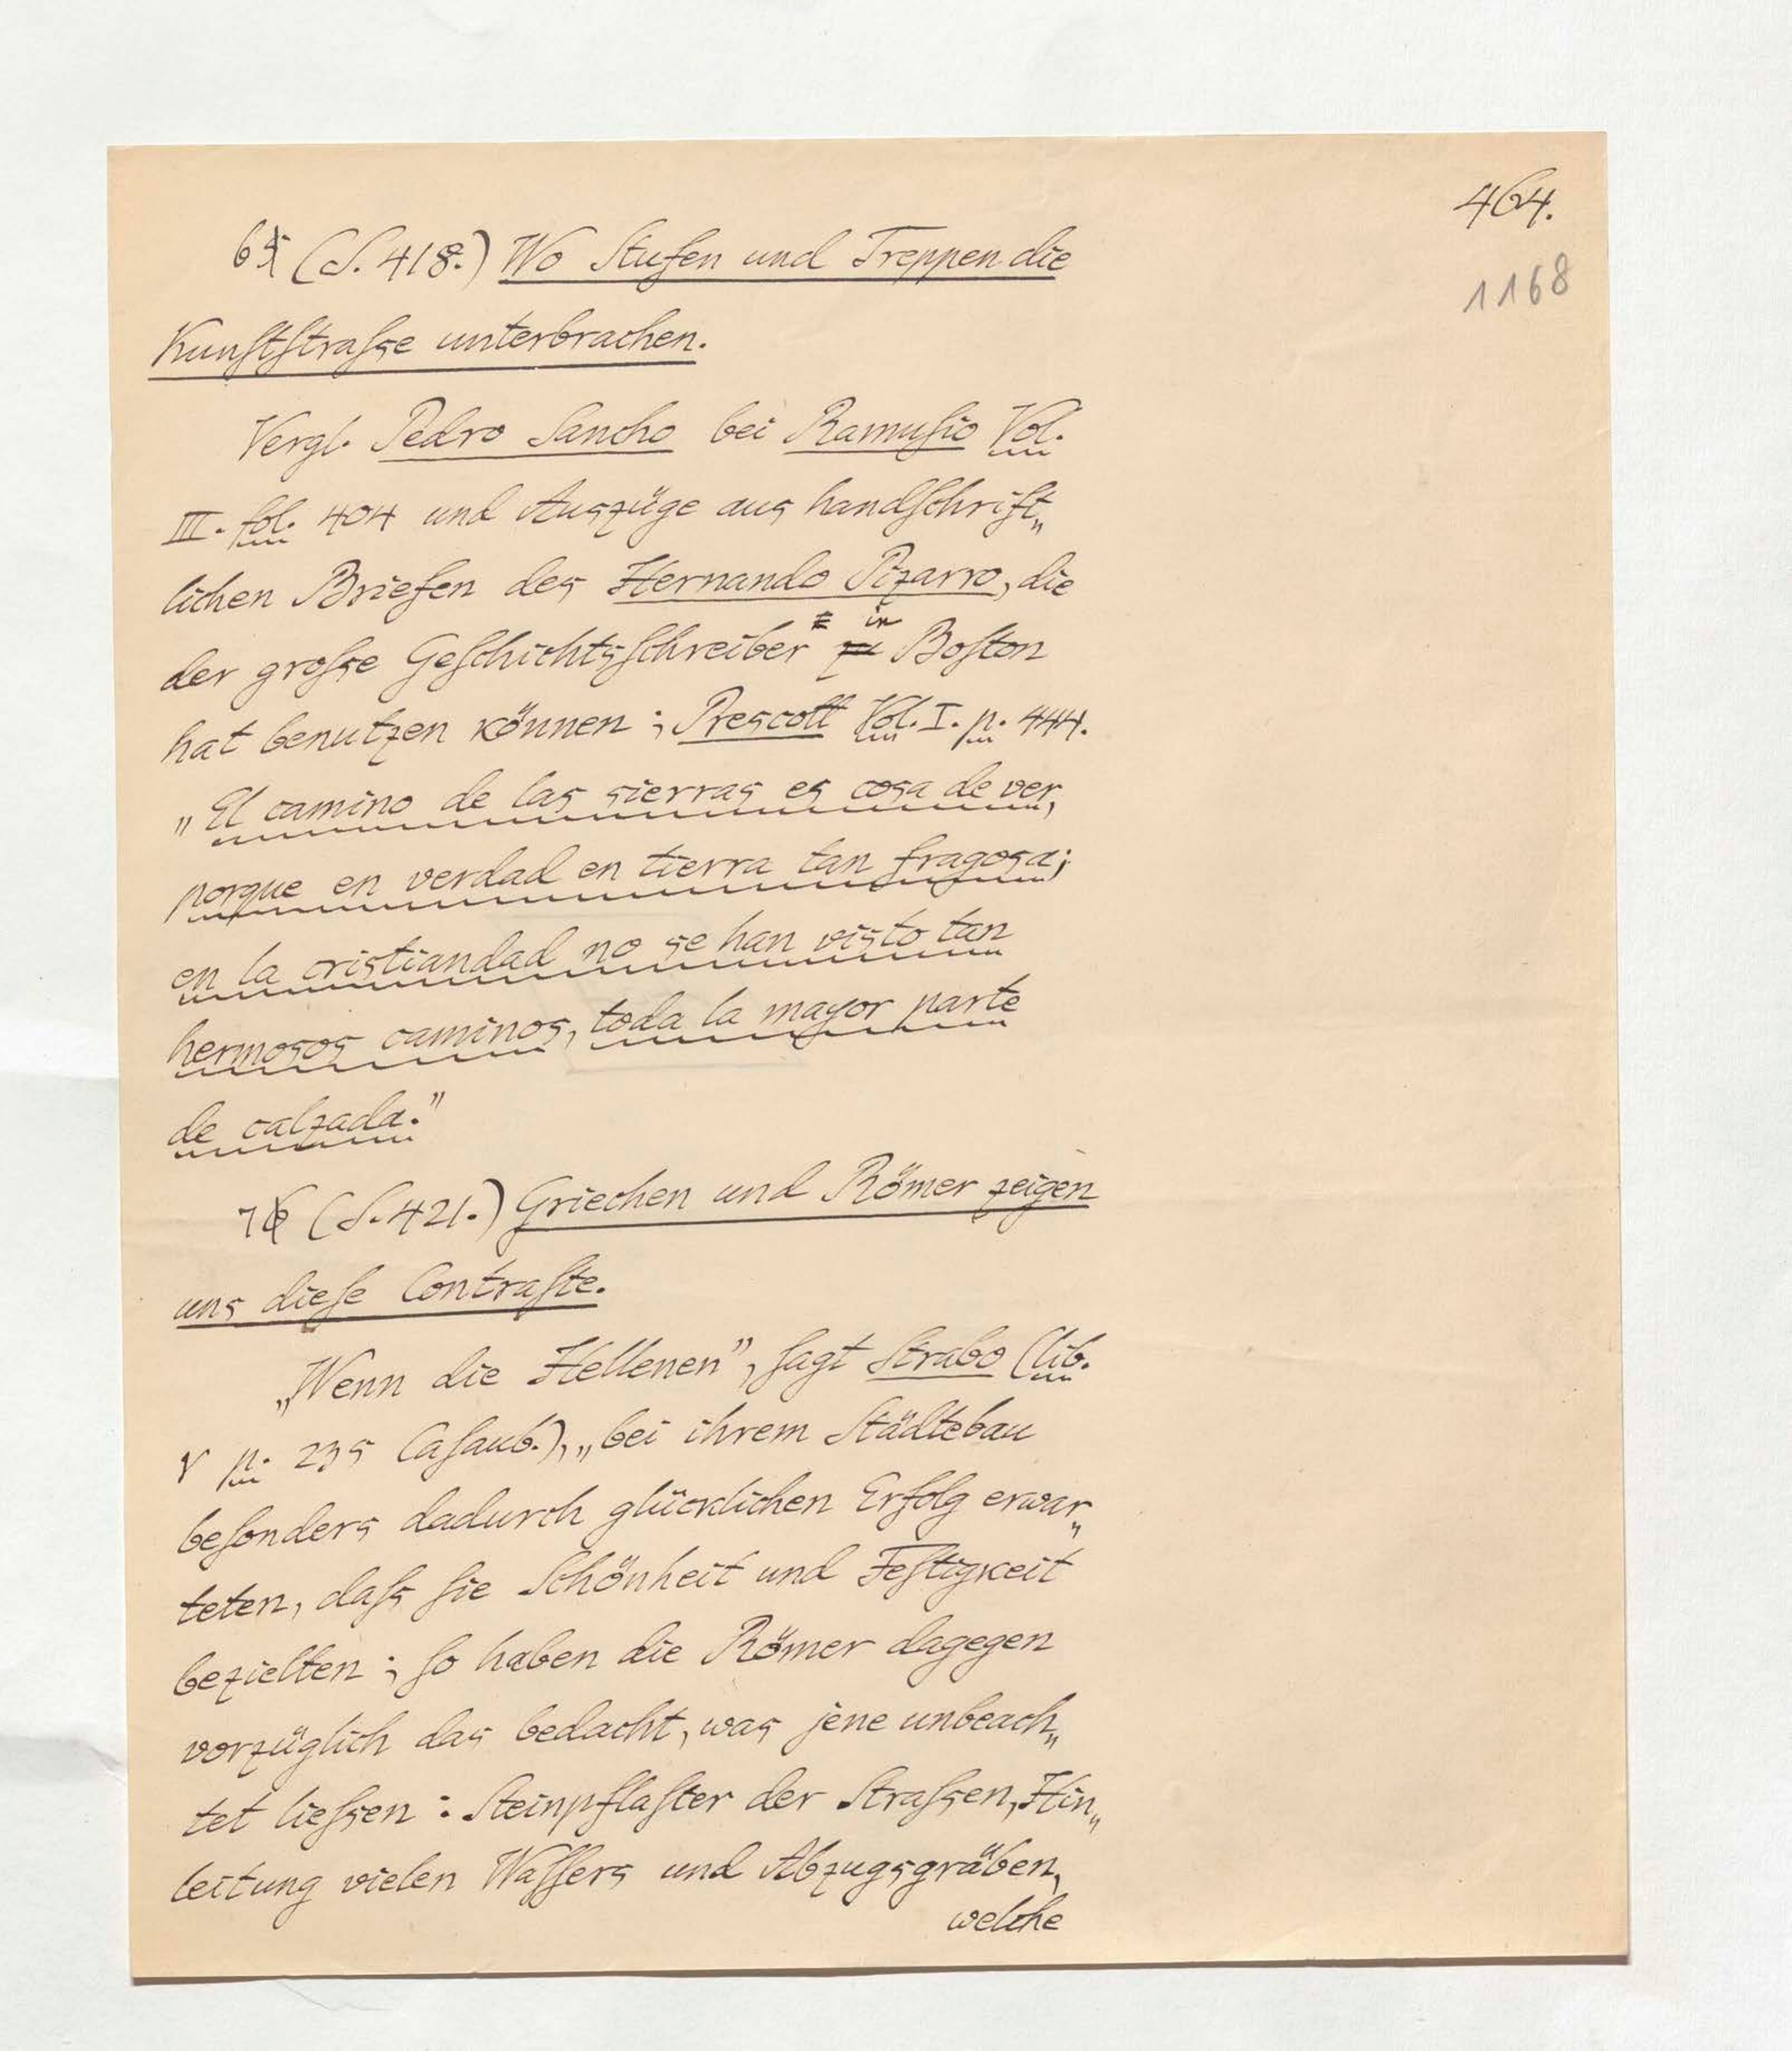 464.
1168
6 (S. 418.) Wo Stufen und Treppen die
Kunststrasse unterbrachen.
Vergl. Pedro Sancho bei Ramusio Vol.
III. fol. 404 und Auszüge aus handschrift„
lichen Briefen des Hernando Pizarro, die
in
der grosse Geschichtsschreiber zu Boston
hat benutzen können; Prescott Vol. I. p. 444.
„El camino de las sierras es cosa de ver,
porque en verdad en tierra tan fragosa;
en la cristiandad no se han visto tan
hermosos caminos, toda la mayor parte
de calzada.”
7 (S. 421.) Griechen und Römer zeigen
uns diese Contraste.
„Wenn die Hellenen”, sagt Strabo (lib.
V p. 235 Casaub.), „bei ihrem Städtebau
besonders dadurch glücklichen Erfolg erwar„
teten, dass sie Schönheit und Festigkeit
bezielten; so haben die Römer dagegen
vorzüglich das bedacht, was jene unbeach„
tet liessen: Steinpflaster der Strassen, Hin„
leitung vielen Wassers und Abzugsgräben,
welche